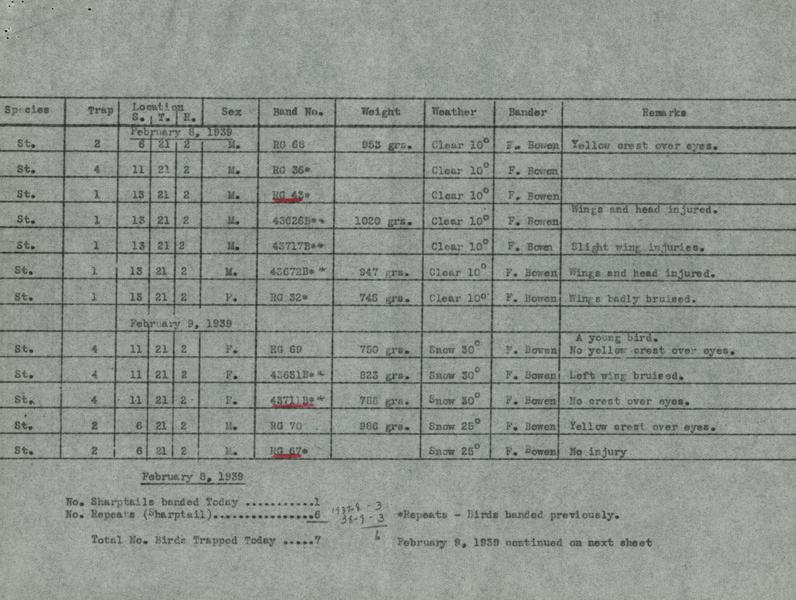 Species Trap Location Sex Band No. Weight Weather Bander Remarks
S. T. R.
February 8, 1939
St. 2 6 21 2 M. RG 68 953 grs. Clear 10° F. Bowen Yellow crest over eyes.
St. 4 11 21 2 M. RG 36* Clear 10° F. Bowen
St. 1 13 21 2 M. RG 43* Clear 10° F. Bowen
St. 1 13 21 2 M. 43626B** 1020 grs. Clear 10° F. Bowen Wings and head injured.
St. 1 13 21 2 M. 43717B** Clear 10° F. Bowen Slight wing injuries.
St. 1 13 21 2 M. 43672B** 947 grs. Clear 10° F. Bowen Wings and head injured.
St. 1 13 21 2 F. RG 32* 745 grs. Clear 10° F. Bowen Wings badly bruised.
February 9, 1939
A young bird.
St. 4 11 21 2 F. RG 69 750 grs. Snow 30° F. Bowen No yellow crest over eyes.
St. 4 11 21 2 F. 43631B** 823 grs. Snow 30° F. Bowen Left wing bruised.
St. 4 11 21 2 F. 43711B** grs. Snow 30° F. Bowen No crest over eyes.
St. 2 6 21 2 M. RG 70 986 grs. Snow 25° F. Bowen Yellow crest over eyes.
St. 2 6 21 2 M. RG 67* Snow 25° F. Bowen No injury
February 8, 1939
No. Sharptails banded Today ...........1
No. Repeats (Sharptail)................6 1937-8 - 3
38-9 - 3 *Repeats - Birds banded previously.
6
Total No. Birds Trapped Today .....7
February 9, 1939 continued on next sheet